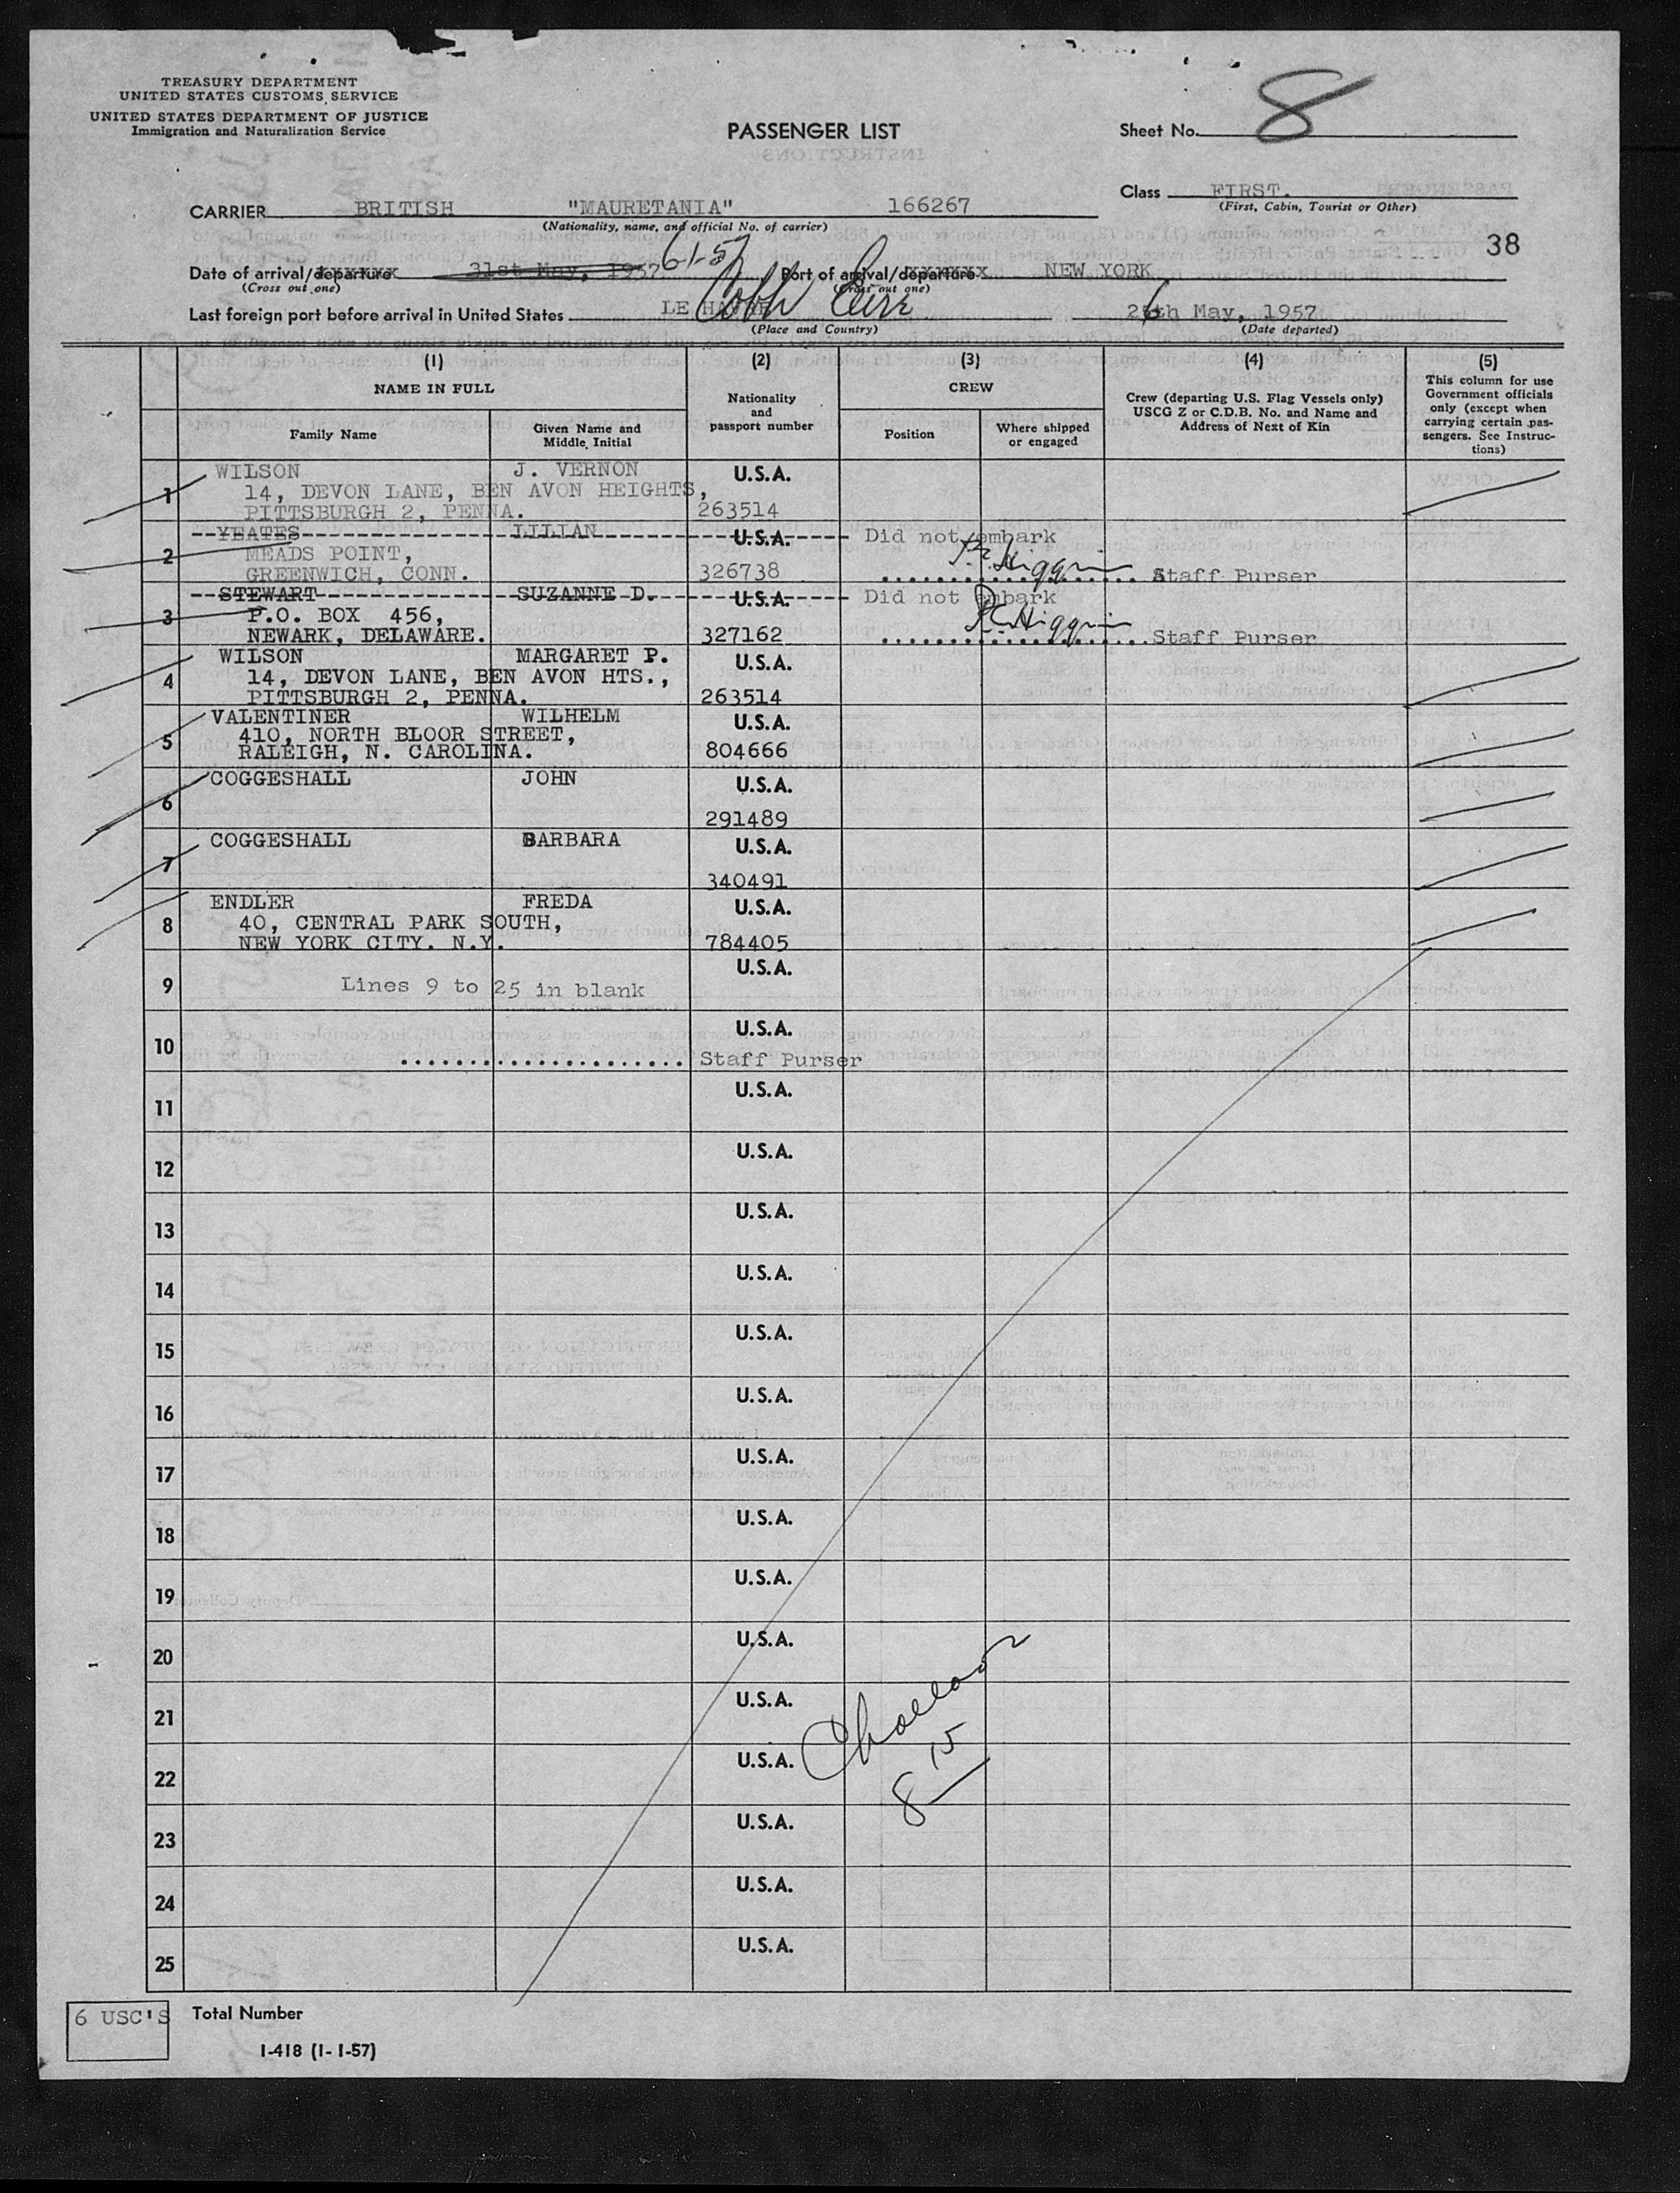 TREASURY DEPARTMENT
UNITED STATES CUSTOMS SERVICE
UNITED STATES DEPARTMENT OF JUSTICE
Immigration and Naturalization Service
PASSENGER LIST
Sheet No. 8
Class FIRST.
(First, Cabin, Tourist or Other)
CARRIER BRITISH "MAURETANIA" 166267
(Nationality, name, and official No. of carrier)
38
Date of arrival/departure 31st May, 1957 6-1-57 Port of arrival/departure NEW YORK
(Cross out one) (Cross out one)
Last foreign port before arrival in United States LE HAVRE Cobh Eire 26th May, 1957
(Place and Country) (Date departed)
(1) (2) (3) (4) (5)
NAME IN FULL
Family Name
Given Name and Middle Initial
Nationality and passport number
CREW
Position
Where shipped or engaged
Crew (departing U.S. Flag Vessels only)
USCG Z or C.D.B. No. and Name and
Address of Next of Kin
This column for use
Government officials
only (except when
carrying certain pas-
sengers. See Instruc-
tions)
1 WILSON J. VERNON U.S.A.
14, DEVON LANE, BEN AVON HEIGHTS,
PITTSBURGH 2, PENNA. 263514
2 YEATES LILIAN U.S.A. Did not embark
MEADS POINT,
GREENWICH, CONN. 326738 Staff Purser
3 STEWART SUZANNE D. U.S.A. Did not embark
P.O. BOX 456,
NEWARK, DELAWARE. 327162 Staff Purser
4 WILSON MARGARET P. U.S.A.
14, DEVON LANE, BEN AVON HTS.,
PITTSBURGH 2, PENNA. 263514
5 VALENTINER WILHELM U.S.A.
410, NORTH BLOOR STREET,
RALEIGH, N. CAROLINA. 804666
6 COGGESHALL JOHN U.S.A.
291489
7 COGGESHALL BARBARA U.S.A.
340491
8 ENDLER FREDA U.S.A.
40, CENTRAL PARK SOUTH,
NEW YORK CITY. N.Y. 784405
9 Lines 9 to 25 in blank U.S.A.
10 U.S.A.
Staff Purser
11 U.S.A.
12 U.S.A.
13 U.S.A.
14 U.S.A.
15 U.S.A.
16 U.S.A.
17 U.S.A.
18 U.S.A.
19 U.S.A.
20 U.S.A.
21 U.S.A.
22 U.S.A.
8 15
23 U.S.A.
24 U.S.A.
25 U.S.A.
6 USC'S Total Number
I-418 (1-1-57)